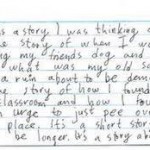 s a story I was thinking a
e story of when I wa
g my friends dog and
what was my old sc
a ruin about to be dem
he story of how I found
classroom and how I fou
n urge to just pee over
place. It's a short story
be longer. It's a story abou